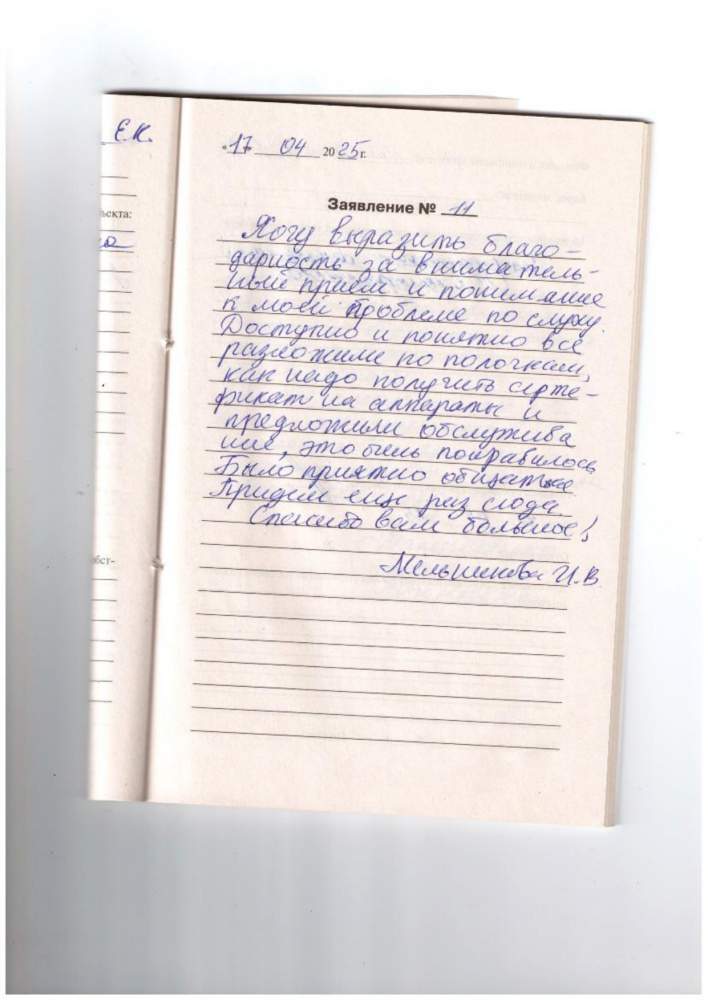 Е.К.
ъекта:
бст-
«17» 04 2025 г.
Заявление № 11
Хочу выразить благо-
дарность за вниматель-
ный прием и понимание
к моей проблеме по слуху.
Доступно и понятно все
разложили по полочкам,
как надо получить серте-
фикат на аппараты и
предложили обслужива
ние, это очень понравилось
Было приятно общаться
Придем еще раз сюда
Спасибо вам большое!
Мельникова И.В.